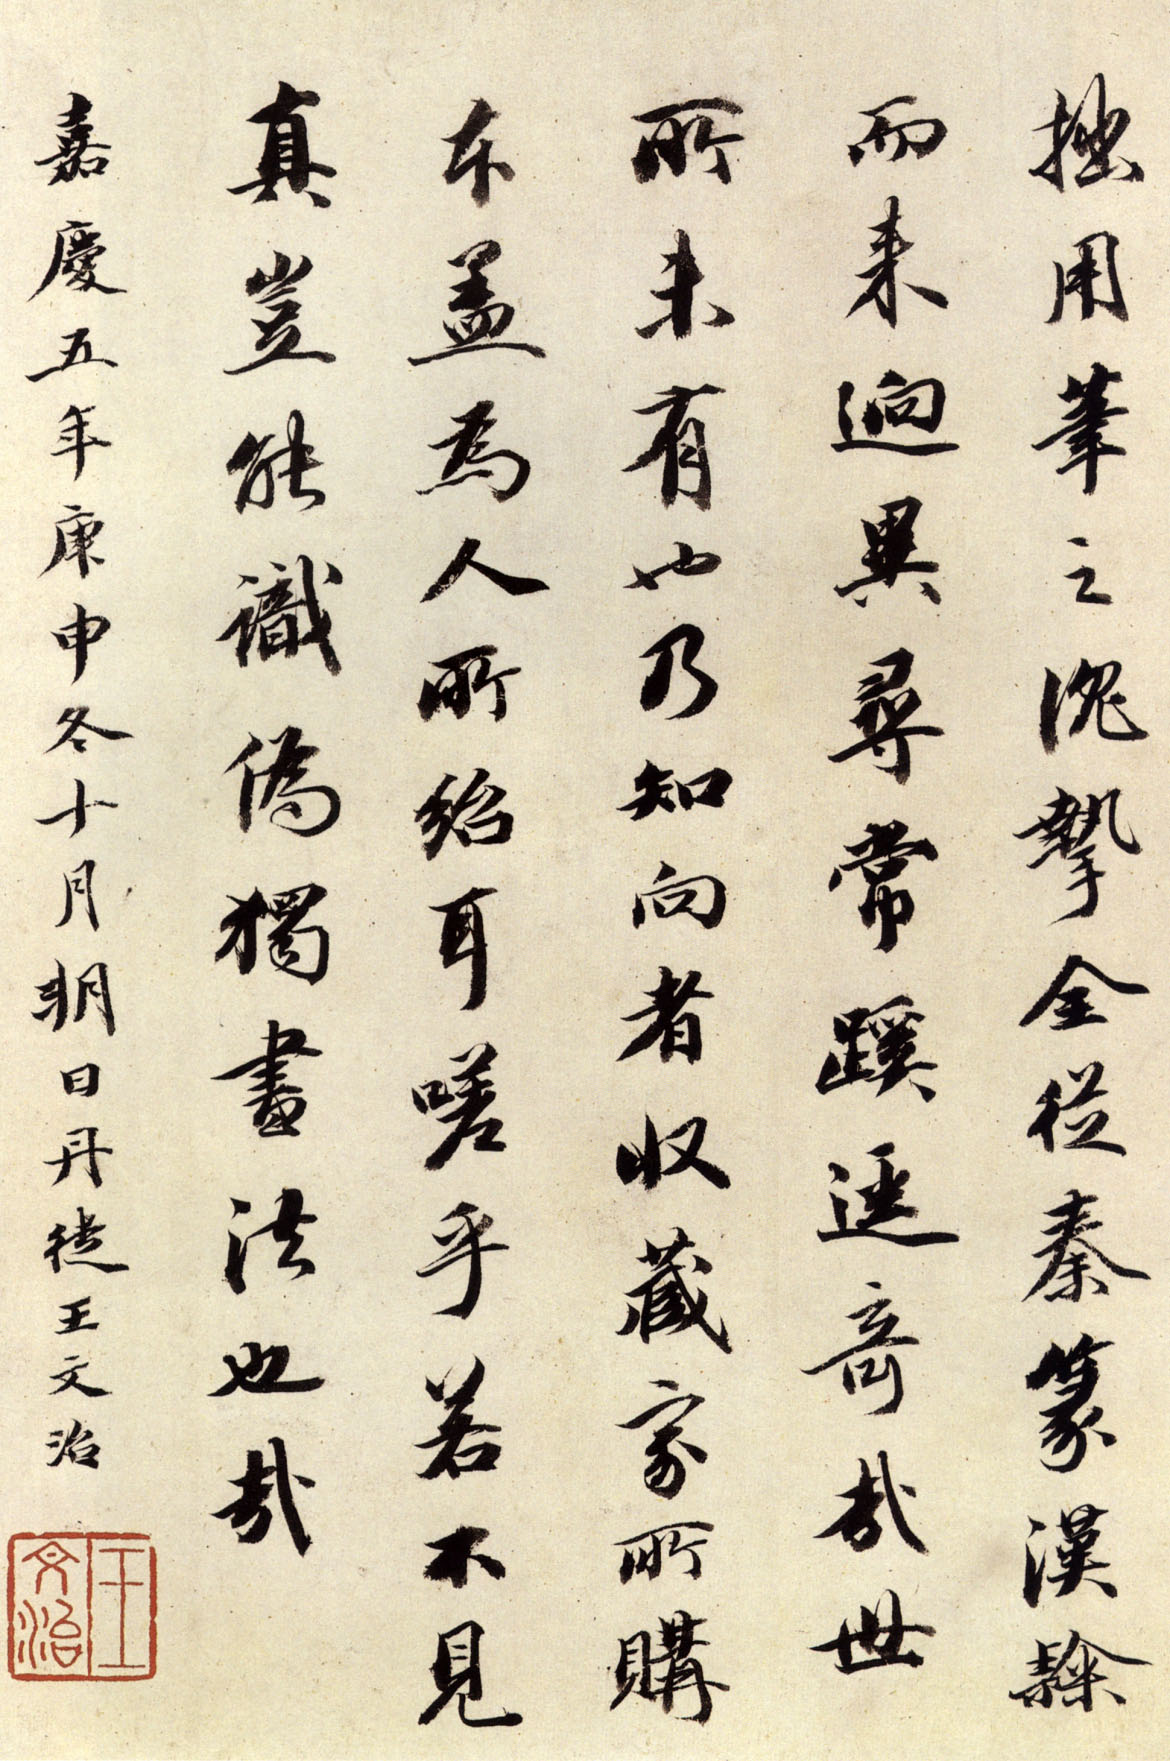 拙用筆之沉摯全從秦篆漢隸
而来迥異尋常蹊逕奇哉世
所未有也乃知向者收藏家所購
本盖為人所紿耳嗟乎若不見
真豈能識偽獨畫法也哉
嘉慶五年庚申冬十月朔日丹徒王文治
王文治